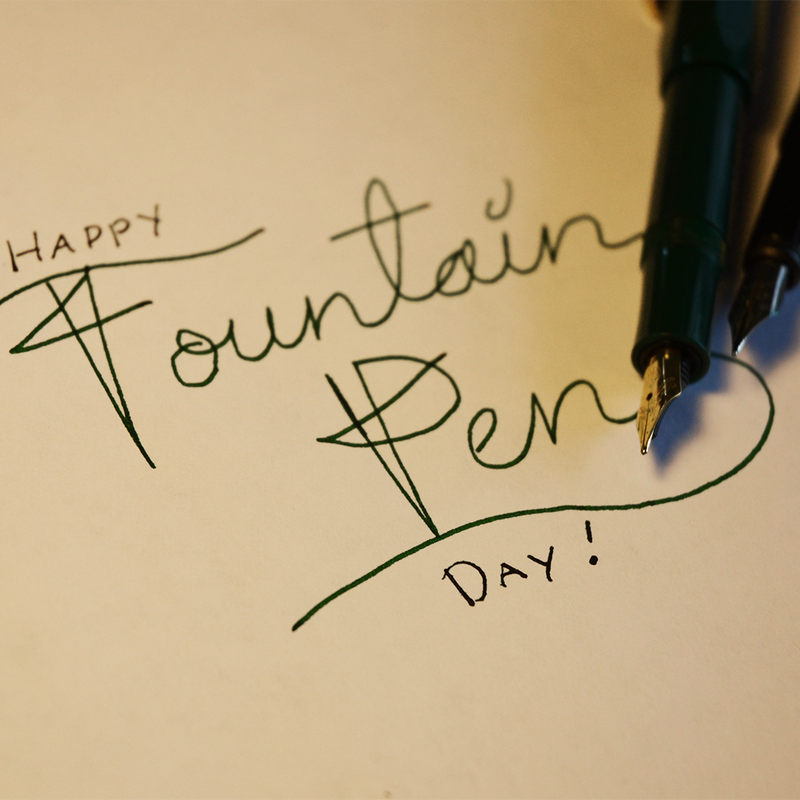 HAPPY
Fountain
Pen
DAY!